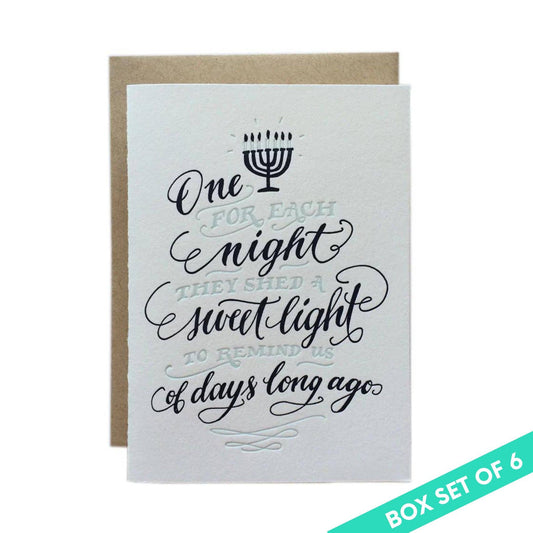 One
FOR EACH
night
THEY SHED A
sweet light
TO REMIND US
of days long ago
BOX SET OF 6